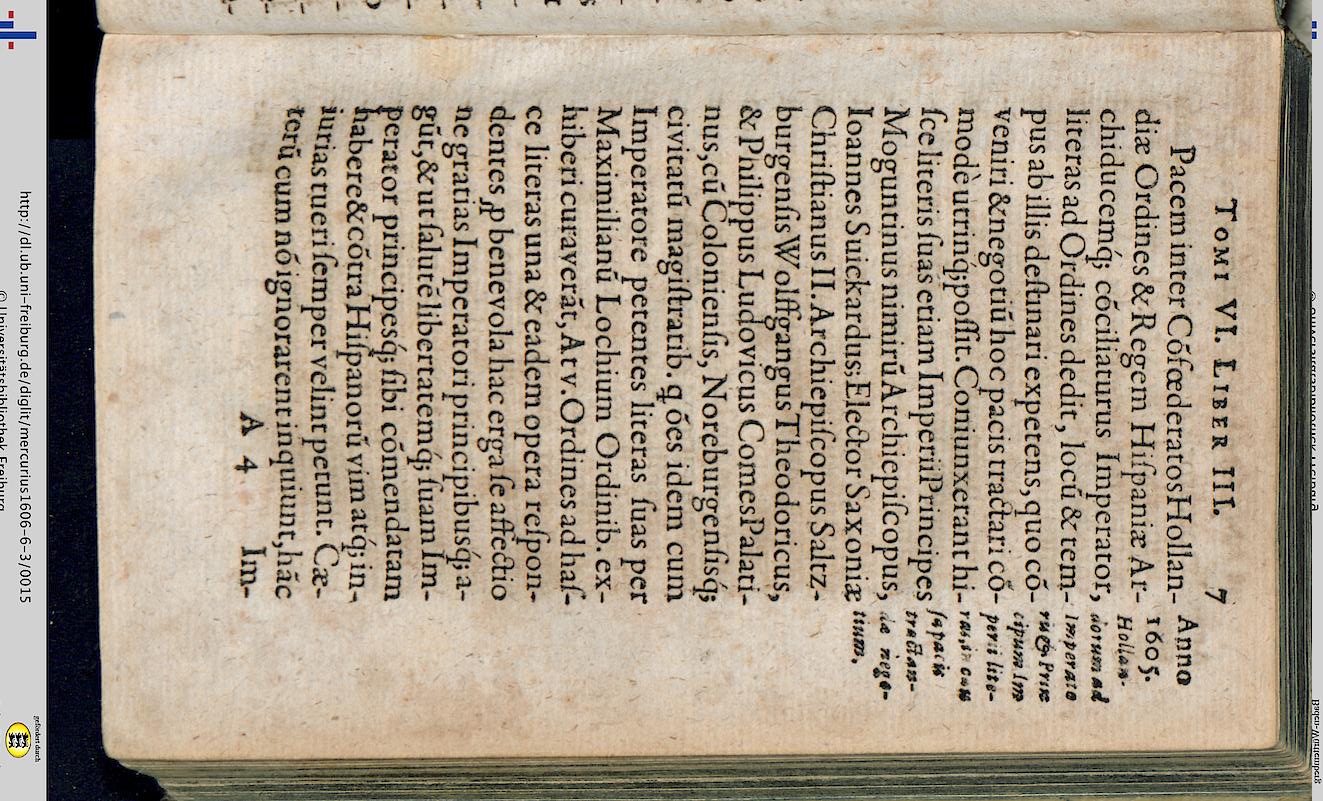 TOMI VI. LIBER III. 7
Pacem inter Cõfœderatos Hollan-
diæ Ordines & Regem Hiſpaniæ Ar-
chiducemq́; cõciliaturus Imperator,
literas ad Ordines dedit, locũ & tem-
pus ab illis deſtinari expetens, quo cõ-
veniri & negotiũ hoc pacis tractari cõ-
modè utrinq́; poſſit. Coniunxerant hi-
ſce literis ſuas etiam Imperii Principes
Moguntinus nimirũ Archiepiſcopus,
Ioannes Suickardus; Elector Saxoniæ
Chriſtianus II. Archiepiſcopus Saltz-
burgenſis Wolffgangus Theodoricus,
& Philippus Ludovicus Comes Palati-
nus, cũ Colonienſis, Noreburgenſisq́;
civitatũ magiſtratib. q ões idem cum
Imperatore petentes literas ſuas per
Maximilianũ Lochium Ordinib. ex-
hiberi curaverãt, At v. Ordines ad haſ-
ce literas una & eadem opera reſpon-
dentes ꝓ benevola hac erga ſe affectio
ne gratias Imperatori principibusq́; a-
gũt, & ut ſalutẽ libertatemq́; ſuam Im-
perator principesq́; ſibi cõmendatam
habere & cõtra Hiſpanorũ vim atq́; in-
iurias tueri ſemper velint petunt. Cæ-
terũ cum nõ ignorarent inquiunt, hãc
A 4 Im-
Anno
1605.
Hollan-
dorum ad
Imperato
rẽ & Prin
cipum Im
perii lite-
ras, in cau
ſa pacis
tractan-
dæ nego-
tium.
http://dl.ub.uni-freiburg.de/diglit/mercurius1606-6-3/0015
© Universitätsbibliothek Freiburg
gefördert durch